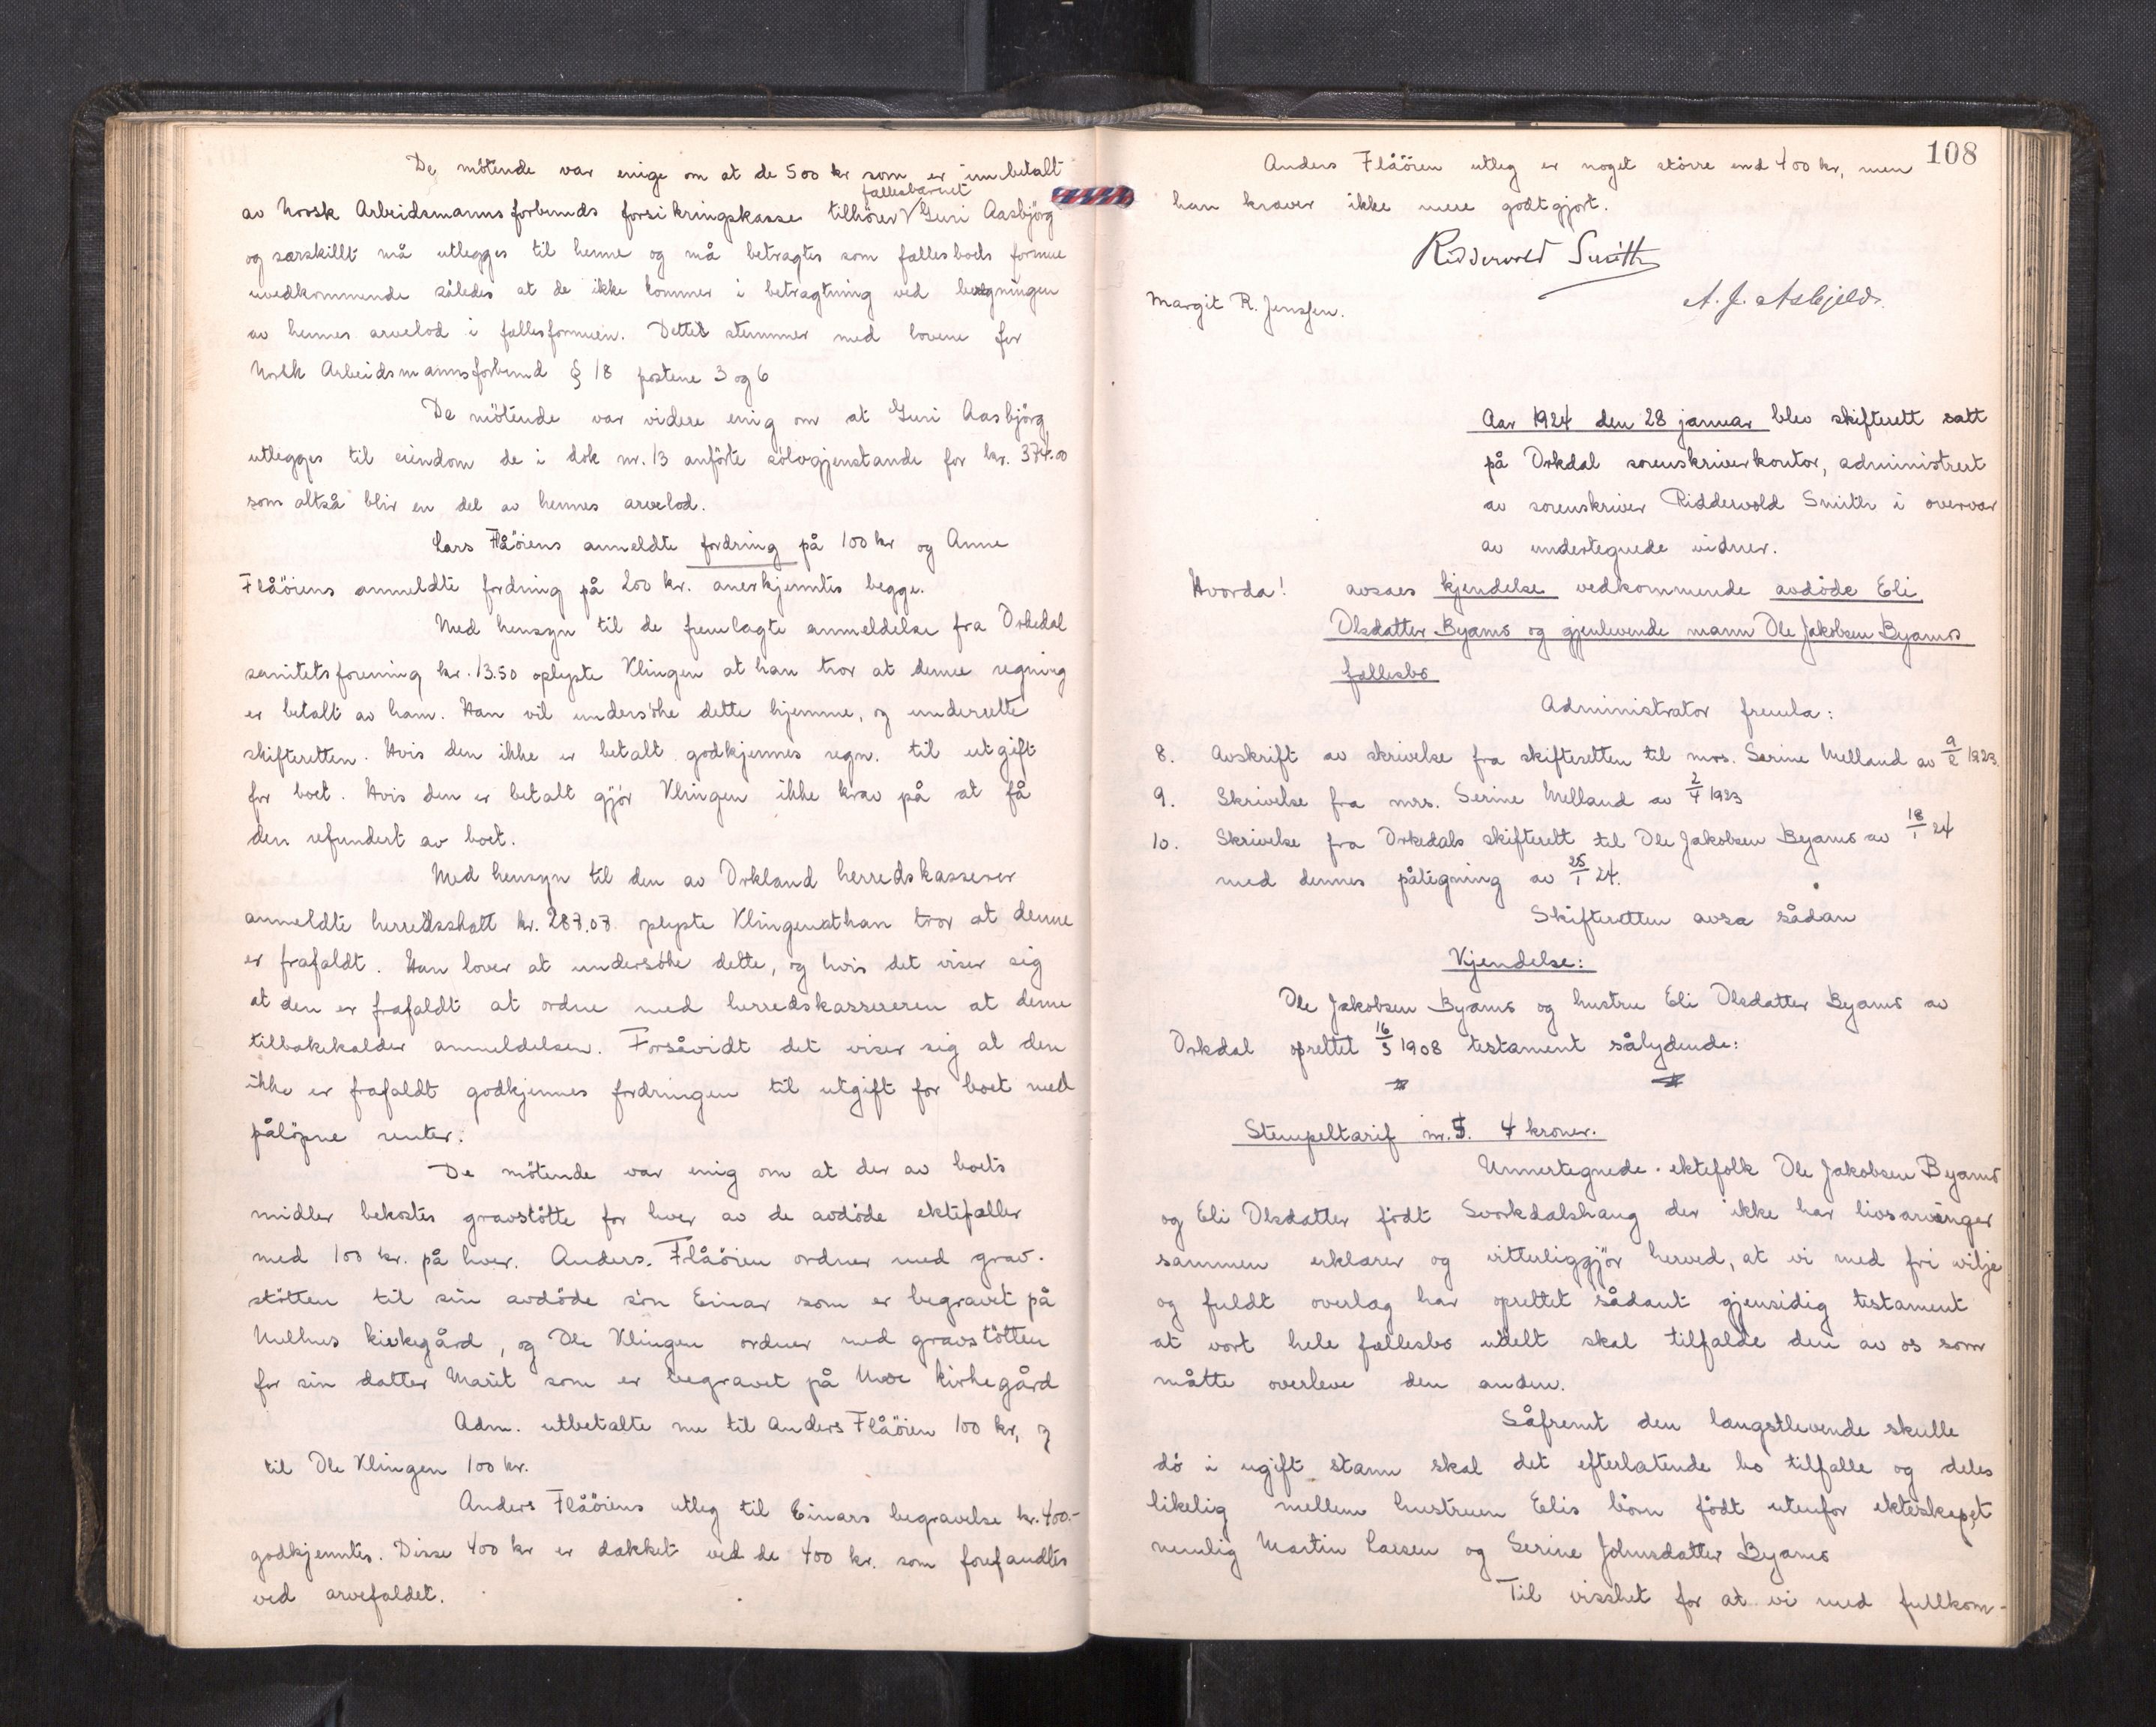 De mötende var enige om at de 500 kr som er innbetalt
fællesbarnet
av Norsk Arbeidsmannsforbunds forsikringskasse tilhörer V Guri Aasbjörg
og særskillt må utlegges til henne og må betragtes som fællesboets formue
uvedkommende således at de ikke kommer i betragtning ved beregningen
av hennes arvelod i fællesformuen. Dettet stemmer med lovene for
Norsk Arbeidsmannsforbund § 18 postene 3 og 6
De mötende var videre enig om at Guri Aasbjörg
utlegges til eiendom de i dok nr. 13 anförte sölvgjenstande for kr. 374.00
som altså blir en del av hennes arvelod.
Lars Flåöiens anmeldte fordring på 100 kr og Anne
Flåöiens anmeldte fordring på 200 kr. anerkjenntes begge.
Med hensyn til de fremlagte anmeldelse fra Orkedal
sanitetsforening kr. 13.50 oplyste Klingen at han tror at denne regning
er betalt av ham. Han vil undersöke dette hjemme, og underrette
skifteretten. Hvis den ikke er betalt godkjennes regn. til utgift
for boet. Hvis den er betalt gjör Klingen ikke krav på at få
den refundert av boet.
Med hensyn til den av Orkland herredskasserer
anmeldte herredsskatt kr. 287.07. plyste Klingen at han tror at denne
er frafaldt. Han lover at undersöke dette, og hvis det viser sig
at den er frafaldt at ordne med herredskassereren at denne
tilbakekalder anmeldelsen. Forsåvidt det viser sig at den
ikke er frafaldt godkjennes fordringen til utgift for boet med
pålöpne renter.
De mötende var enig om at der av boets
midler bekostes gravstötte for hver av de avdöde ektefæller
med 100 kr. på hver. Anders Flåöien ordner med grav-
stötten til sin avdöde sön Einar som er begravet på
Melhus kirkegård, og Ole Klingen ordner med gravstötten
for sin datter Marit som er begravet på Moe kirkegård
Adm. utbetalte nu til Anders Flåöien 100 kr, og
til Ole Klingen 100 kr.
Anders Flåöiens utleg til Einars begravelse kr. 400.-
godkjenntes. Disse 400 kr er dækket ved de 400 kr. som forefandtes
ved arvefaldet.
108
Anders Flåöien utleg er noget större end 400 kr, men
han kræver ikke mere godtgjort.
Ridderwold Smith
A. J. Asbjeld
Margit R. Jenssen.
Aar 1924 den 28 januar blev skifterett satt
på Orkdal sorenskriverkontor, administrert
av sorenskriver Ridderwold Smith i overvær
av undertegnede vidner.
Hvorda! avsaes kjendelse vedkommende avdöde Eli
Olsdatter Byams og gjenlevende mann Ole Jakobsen Byams
fællesbo
Administrator fremla:
8. Avskrift av skrivelse fra skifteretten til mrs. Serine Melland av 9/2 1923.
9. Skrivelse fra mrs. Serine Melland av 2/4 1923
10. Skrivelse fra Orkedals skifterett til Ole Jakobsen Byams av 18/1 24
med dennes påtegning av 25/1 24.
Skifteretten avsa sådan
Kjendelse:
Ole Jakobsen Byams og hustru Eli Olsdatter Byams av
Orkdal oprettet 16/3 1908 testament sålydende:
Stempeltarif nr. 5. 4 kroner.
Unnertegnede ektefolk Ole Jakobsen Byams
og Eli Olsdatter födt Svorkdalshaug der ikke har livsarvinger
sammen erklærer og vitterliggjör herved, at vi med fri vilje
og fuldt overlæg har oprettet sådant gjensidig testament
at vort hele fællesbo udelt skal tilfalde den av os som
måtte overleve den anden.
Såfremt den længstlevende skulle
dö i ugift stann skal det efterlatende bo tilfalle og deles
likelig mellem hustruen Elis börn födt utenfor ekteskapet
nemlig Martin Larsen og Serine Johnsdatter Byams
Til visshet for at vi med fullkom-